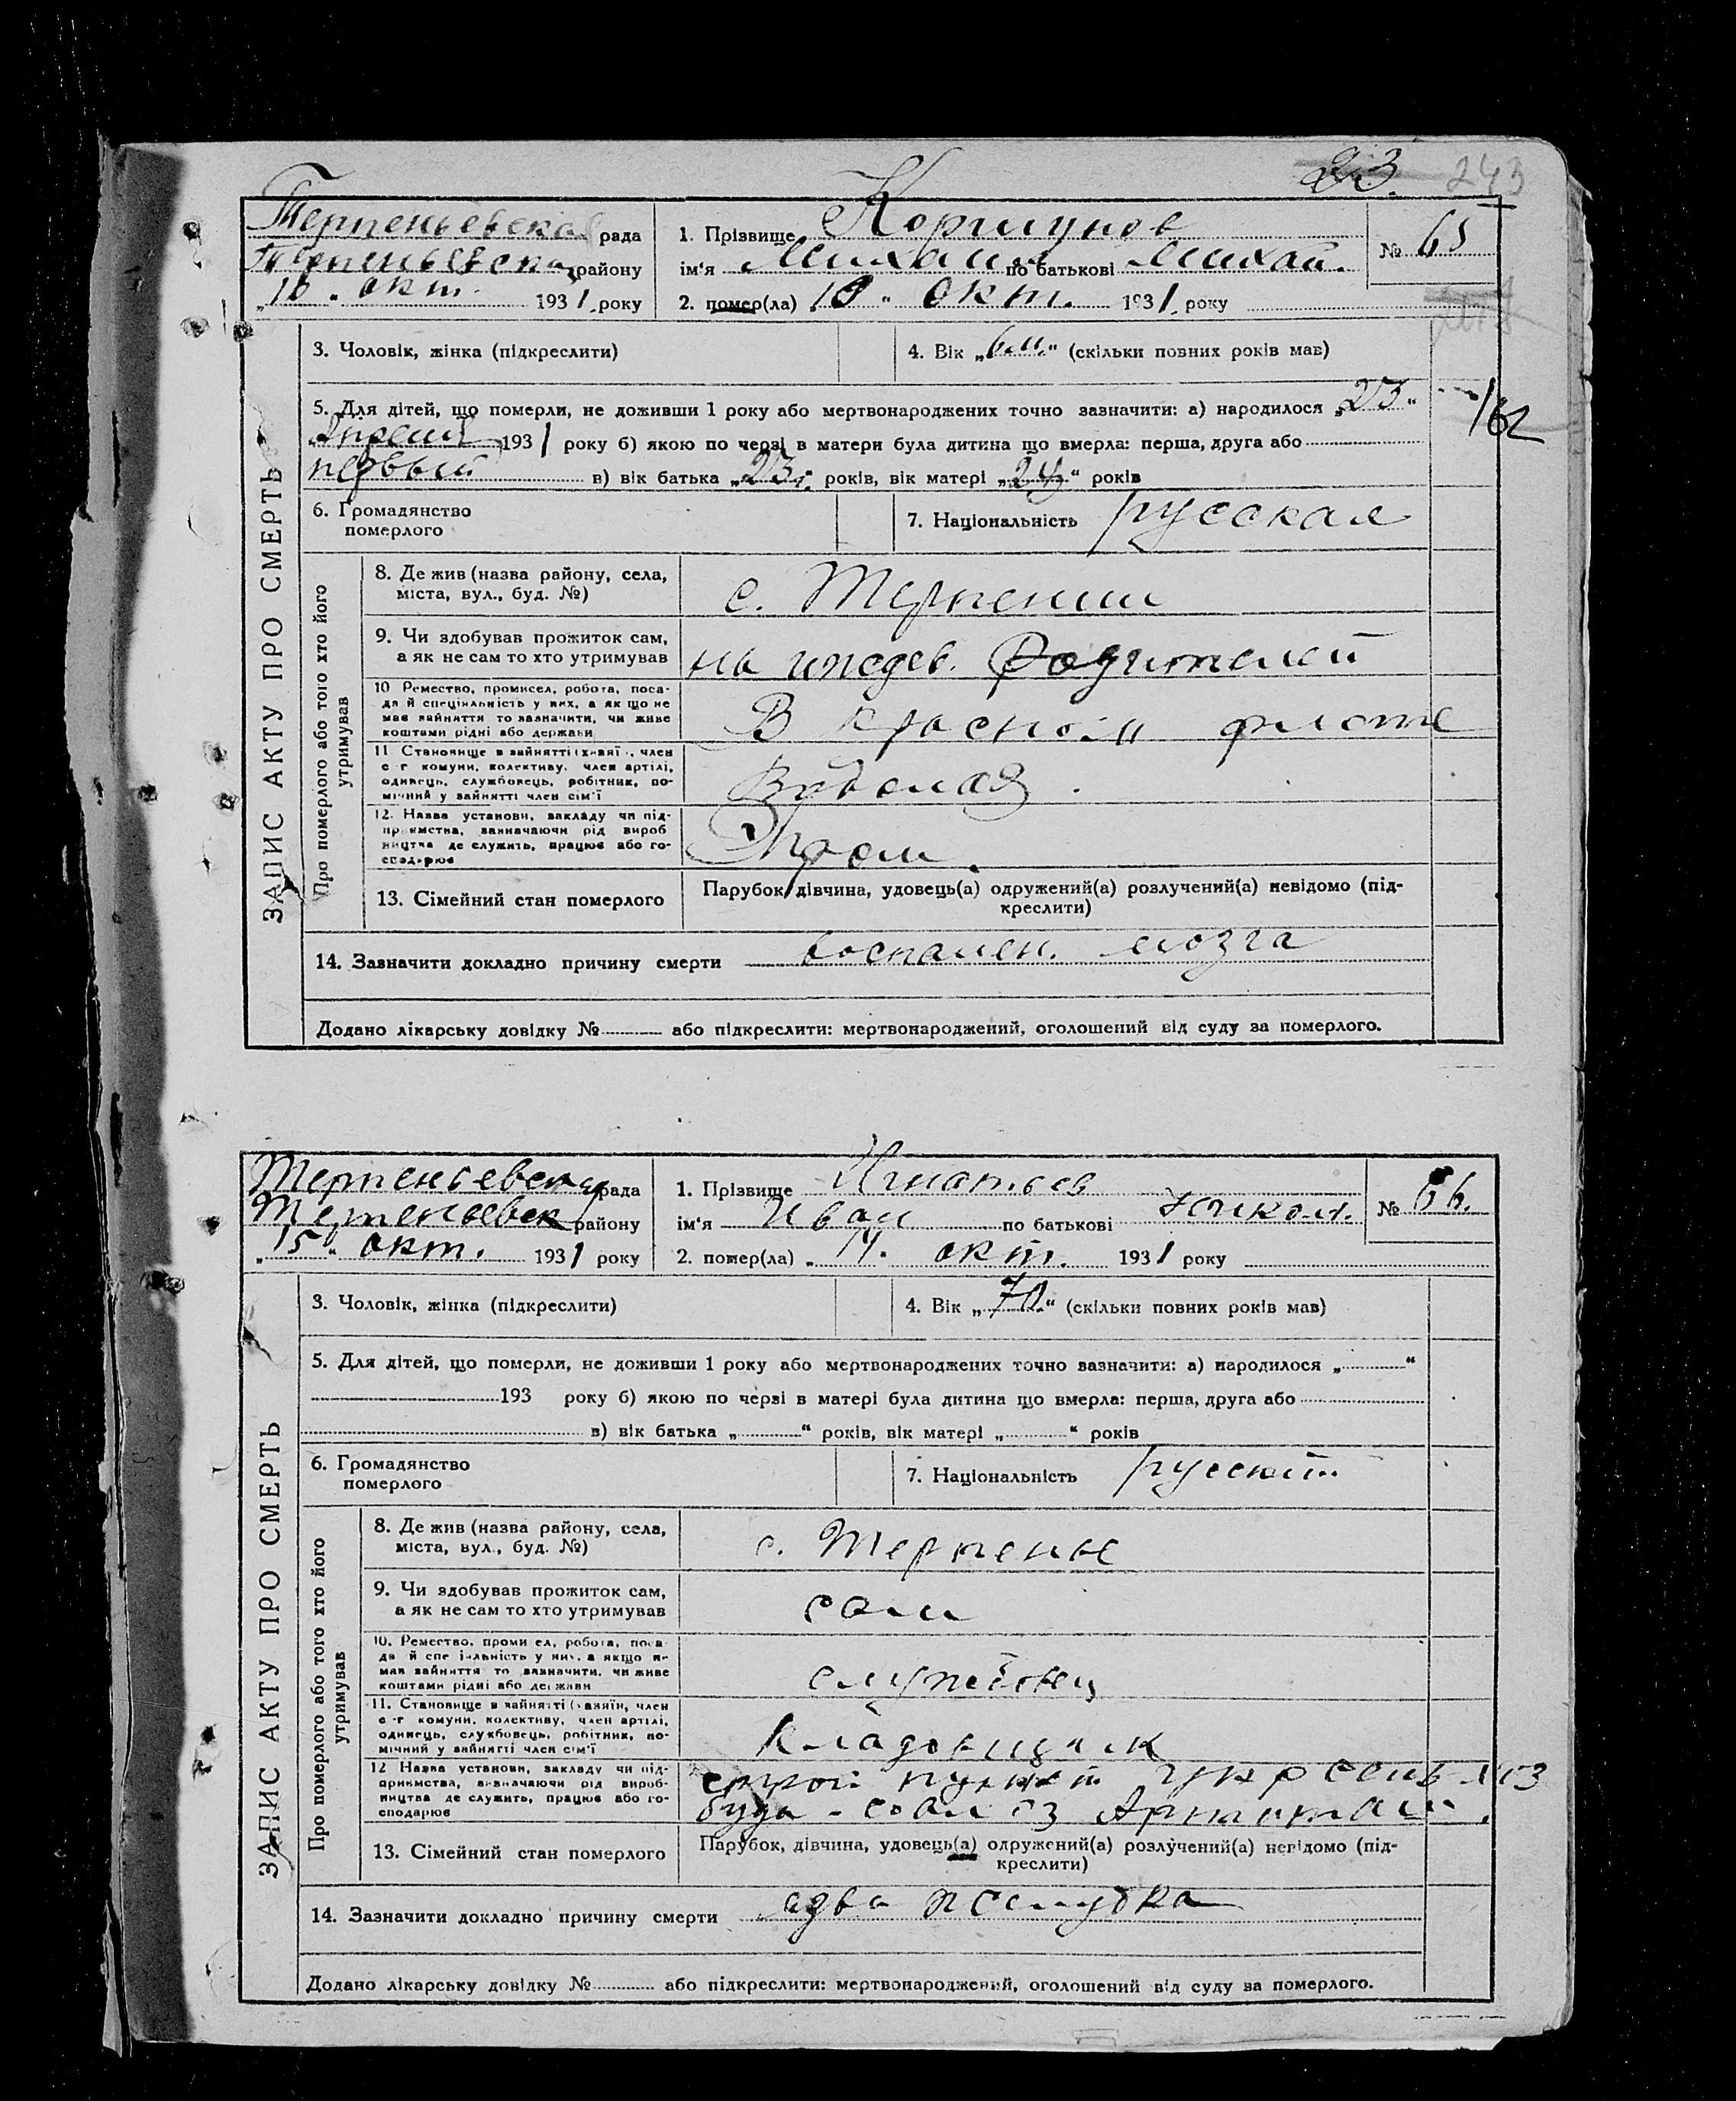 23. 243
Терпеньевская рада
1. Прізвище Коршунов
№ 65
Терпеньевска району
ім'я Михаил по батькові Михай.
"10" окт. 1931 року
2. помер(ла) "10" окт. 1931 року
3. Чоловік, жінка (підкреслити)
4. Вік „6 м.“ (скільки повних років мав)
5. Для дітей, що померли, не доживши 1 року або мертвонароджених точно зазначити: а) народилося „23“
Апреля 1931 року б) якою по черзі в матери була дитина що вмерла: перша, друга або
первый в) вік батька „23 г.“ років, вік матері „24“ років
162
6. Громадянство
померлого
7. Національність русская
ЗАПИС АКТУ ПРО СМЕРТЬ
Про померлого або того хто його
утримував
8. Де жив (назва району, села,
міста, вул., буд. №)
с. Терпении
9. Чи здобував прожиток сам,
а як не сам то хто утримував
на иждев. Родителей
10 Ремество, промисел, робота, поса-
да й спеціальність у них, а як що не
має зайняття то зазначити, чи живе
коштами рідні або держави
В красном флоте
11 Становище в зайнятті (хазяїн, член
с-г комуни, колективу, член артілі,
одинець, службовець, робітник, по-
мічний у зайнятті член сім'ї
12. Назва установи, закладу чи під-
приємства, зазначаючи рід вироб
ництва де служить, працює або го-
сподарює
13. Сімейний стан померлого
Парубок, дівчина, удовець(а) одружений(а) розлучений(а) невідомо (під-
креслити)
14. Зазначити докладно причину смерти воспален. мозга
Додано лікарську довідку № або підкреслити: мертвонароджений, оголошений від суду за померлого.
Терпеньевска рада
1. Прізвище Игнатьев
№ 66.
Терпеньевск району
ім'я Иван по батькові Никол.
"15" окт. 1931 року
2. помер(ла) „14. окт. 1931 року
3. Чоловік, жінка (підкреслити)
4. Вік „70“ (скільки повних років мав)
5. Для дітей, що померли, не доживши 1 року або мертвонароджених точно зазначити: а) народилося „ “
193 року б) якою по черзі в матері була дитина що вмерла: перша, друга або
в) вік батька „ “ років, вік матері „ “ років
6. Громадянство
померлого
7. Національність русский
ЗАПИС АКТУ ПРО СМЕРТЬ
Про померлого або того хто його
утримував
8. Де жив (назва району, села,
міста, вул., буд. №)
с. Терпенье
9. Чи здобував прожиток сам,
а як не сам то хто утримував
сам
10. Ремество, промисел, робота, поса-
да й спеціальність у них, а якщо не
має зайняття то зазначити, чи живе
коштами рідні або держави
службовец
11. Становище в зайнятті (хазяїн, член
с-г комуни, колективу, член артілі,
одинець, службовець, робітник, по-
мічний у зайнятті член сім'ї
Кладовщик
12 Назва установи, закладу чи під-
приємства, зазначаючи рід вироб-
ництва де служить, працює або го-
сподарює
13. Сімейний стан померлого
Парубок, дівчина, удовець(а) одружений(а) розлучений(а) невідомо (під-
креслити)
14. Зазначити докладно причину смерти язва желудка
Додано лікарську довідку № або підкреслити: мертвонароджений, оголошений від суду за померлого.